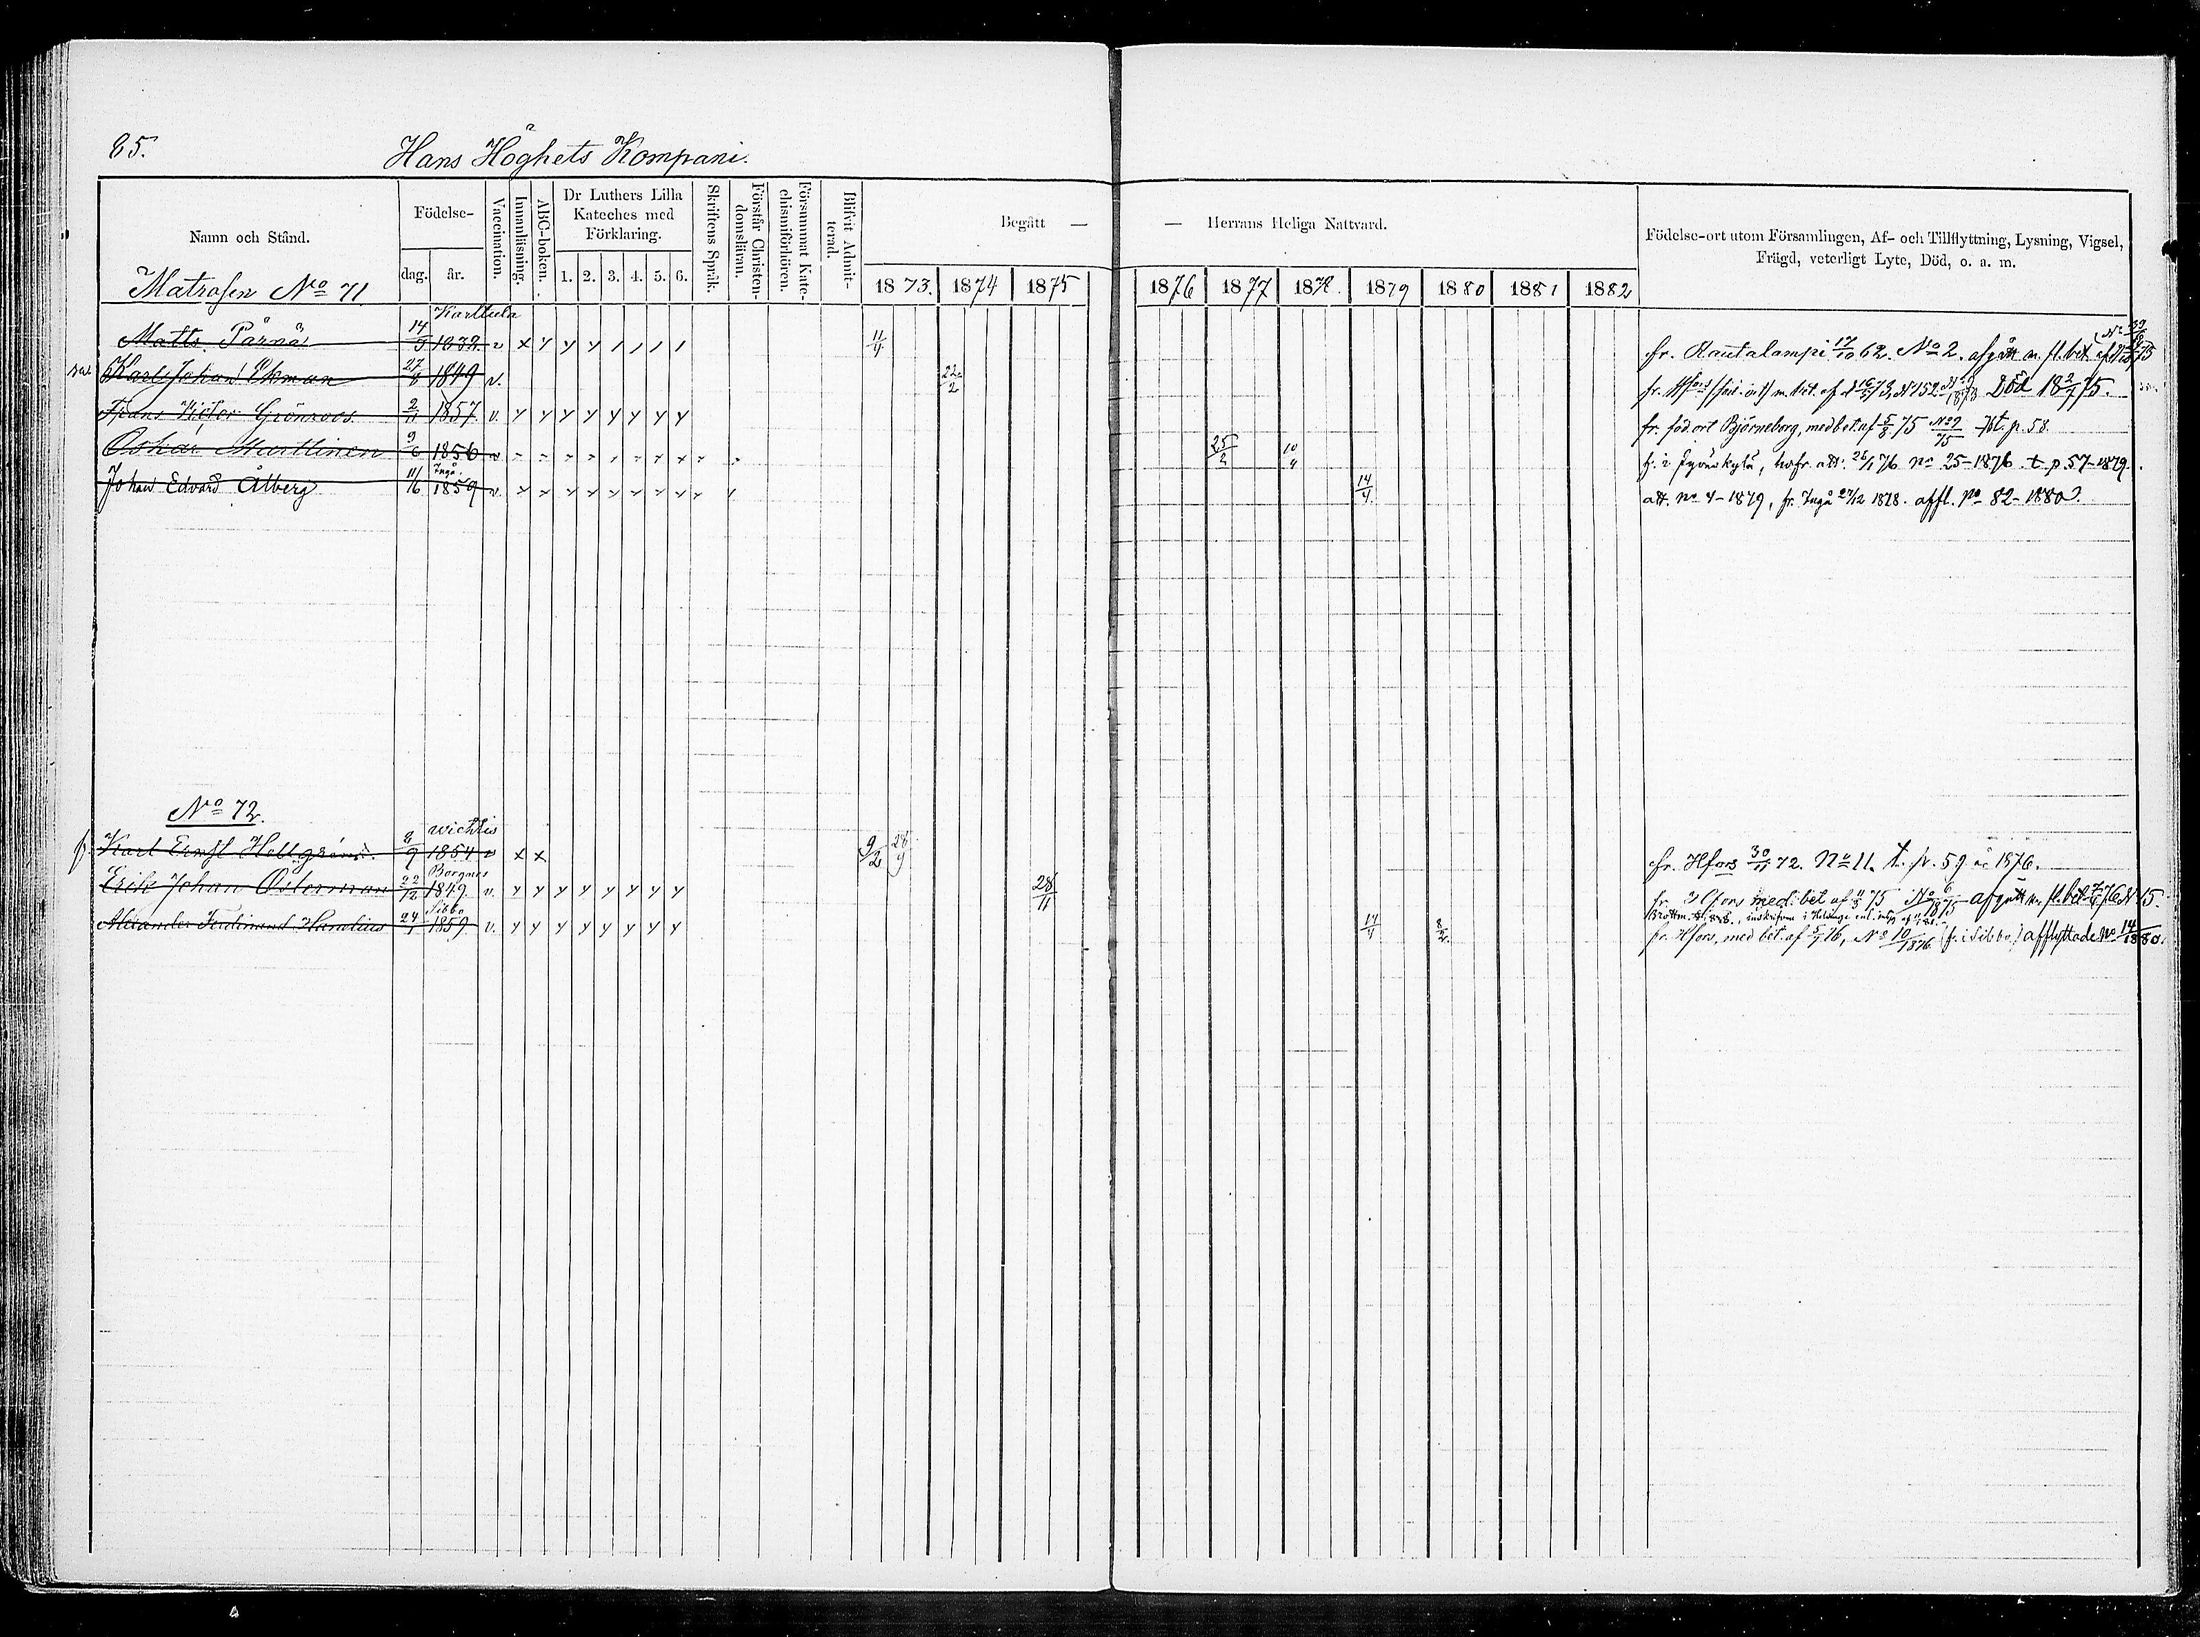 85.
Hans Höghets Kompani.
Namn och Stånd.
Födelse-
dag.
år.
Vaccination.
Innanläsning.
ABC-boken.
Dr Luthers Lilla
Kateches med
Förklaring.
1. 2. 3. 4. 5. 6.
Skriftens Språk.
Förstår Christen-
domsläran.
Försummat Kate-
chismiförhören.
Blifvit Admit-
terad.
Begått —
— Herrans Heliga Nattvard.
1873. 1874 1875 1876 1877 1878. 1879 1880 1881 1882
Födelse-ort utom Församlingen, Af- och Tillflyttning, Lysning, Vigsel,
Frägd, veterligt Lyte, Död, o. a. m.
Matrosen No 71
Karttula
Matts Pärnä 14/9 1832 v x y y y / / / / 11/4 fr. Rautalampi 17/10 62. No 2. afgått m. fl. bet.
Karl Johan Ekman 27/8 1849 v. 22/2 Död 18 2/7 75.
Frans Victor Grönroos 2/11 1857. v. y y y y y y y y fr. föd. ort Björneborg, med bet. af 5/8 75 No 9/75 t. p. 58.
Oskar Marttinen 9/6 1856 v 25/2 10/4 f. i Jyväskylä, att. 26/1 76 no 25-1876. t. p. 57-1879.
Ingå.
Johan Edvard Ålberg 11/6 1859 v. 14/4. att. no 4-1879, fr. Ingå 27/12 1878. affl. no 82-1880.
No 72.
Wichtis
fr. Karl Ernst Hellgrén. 8/9 1854 v x x 9/2 28/9 fr. Hfors 30/11 72. No 11. t. p. 59 år 1876.
Borgnäs
Erik Johan Österman 22/12 1849. v. y y y y y y y y 28/11 fr. Hfors med bet af 4/8 75 No 6/1875 afgått m. fl. bet 7/4 76 N 15.
Sibbo
Alexander Ferdinand Hanelius 24/1 1859. v. y y y y y y y y 14/4 8/2. fr. Hfors, med bet. af 5/7 76, No 10/1876 (f. i Sibbo) afflyttade No 14/1880.